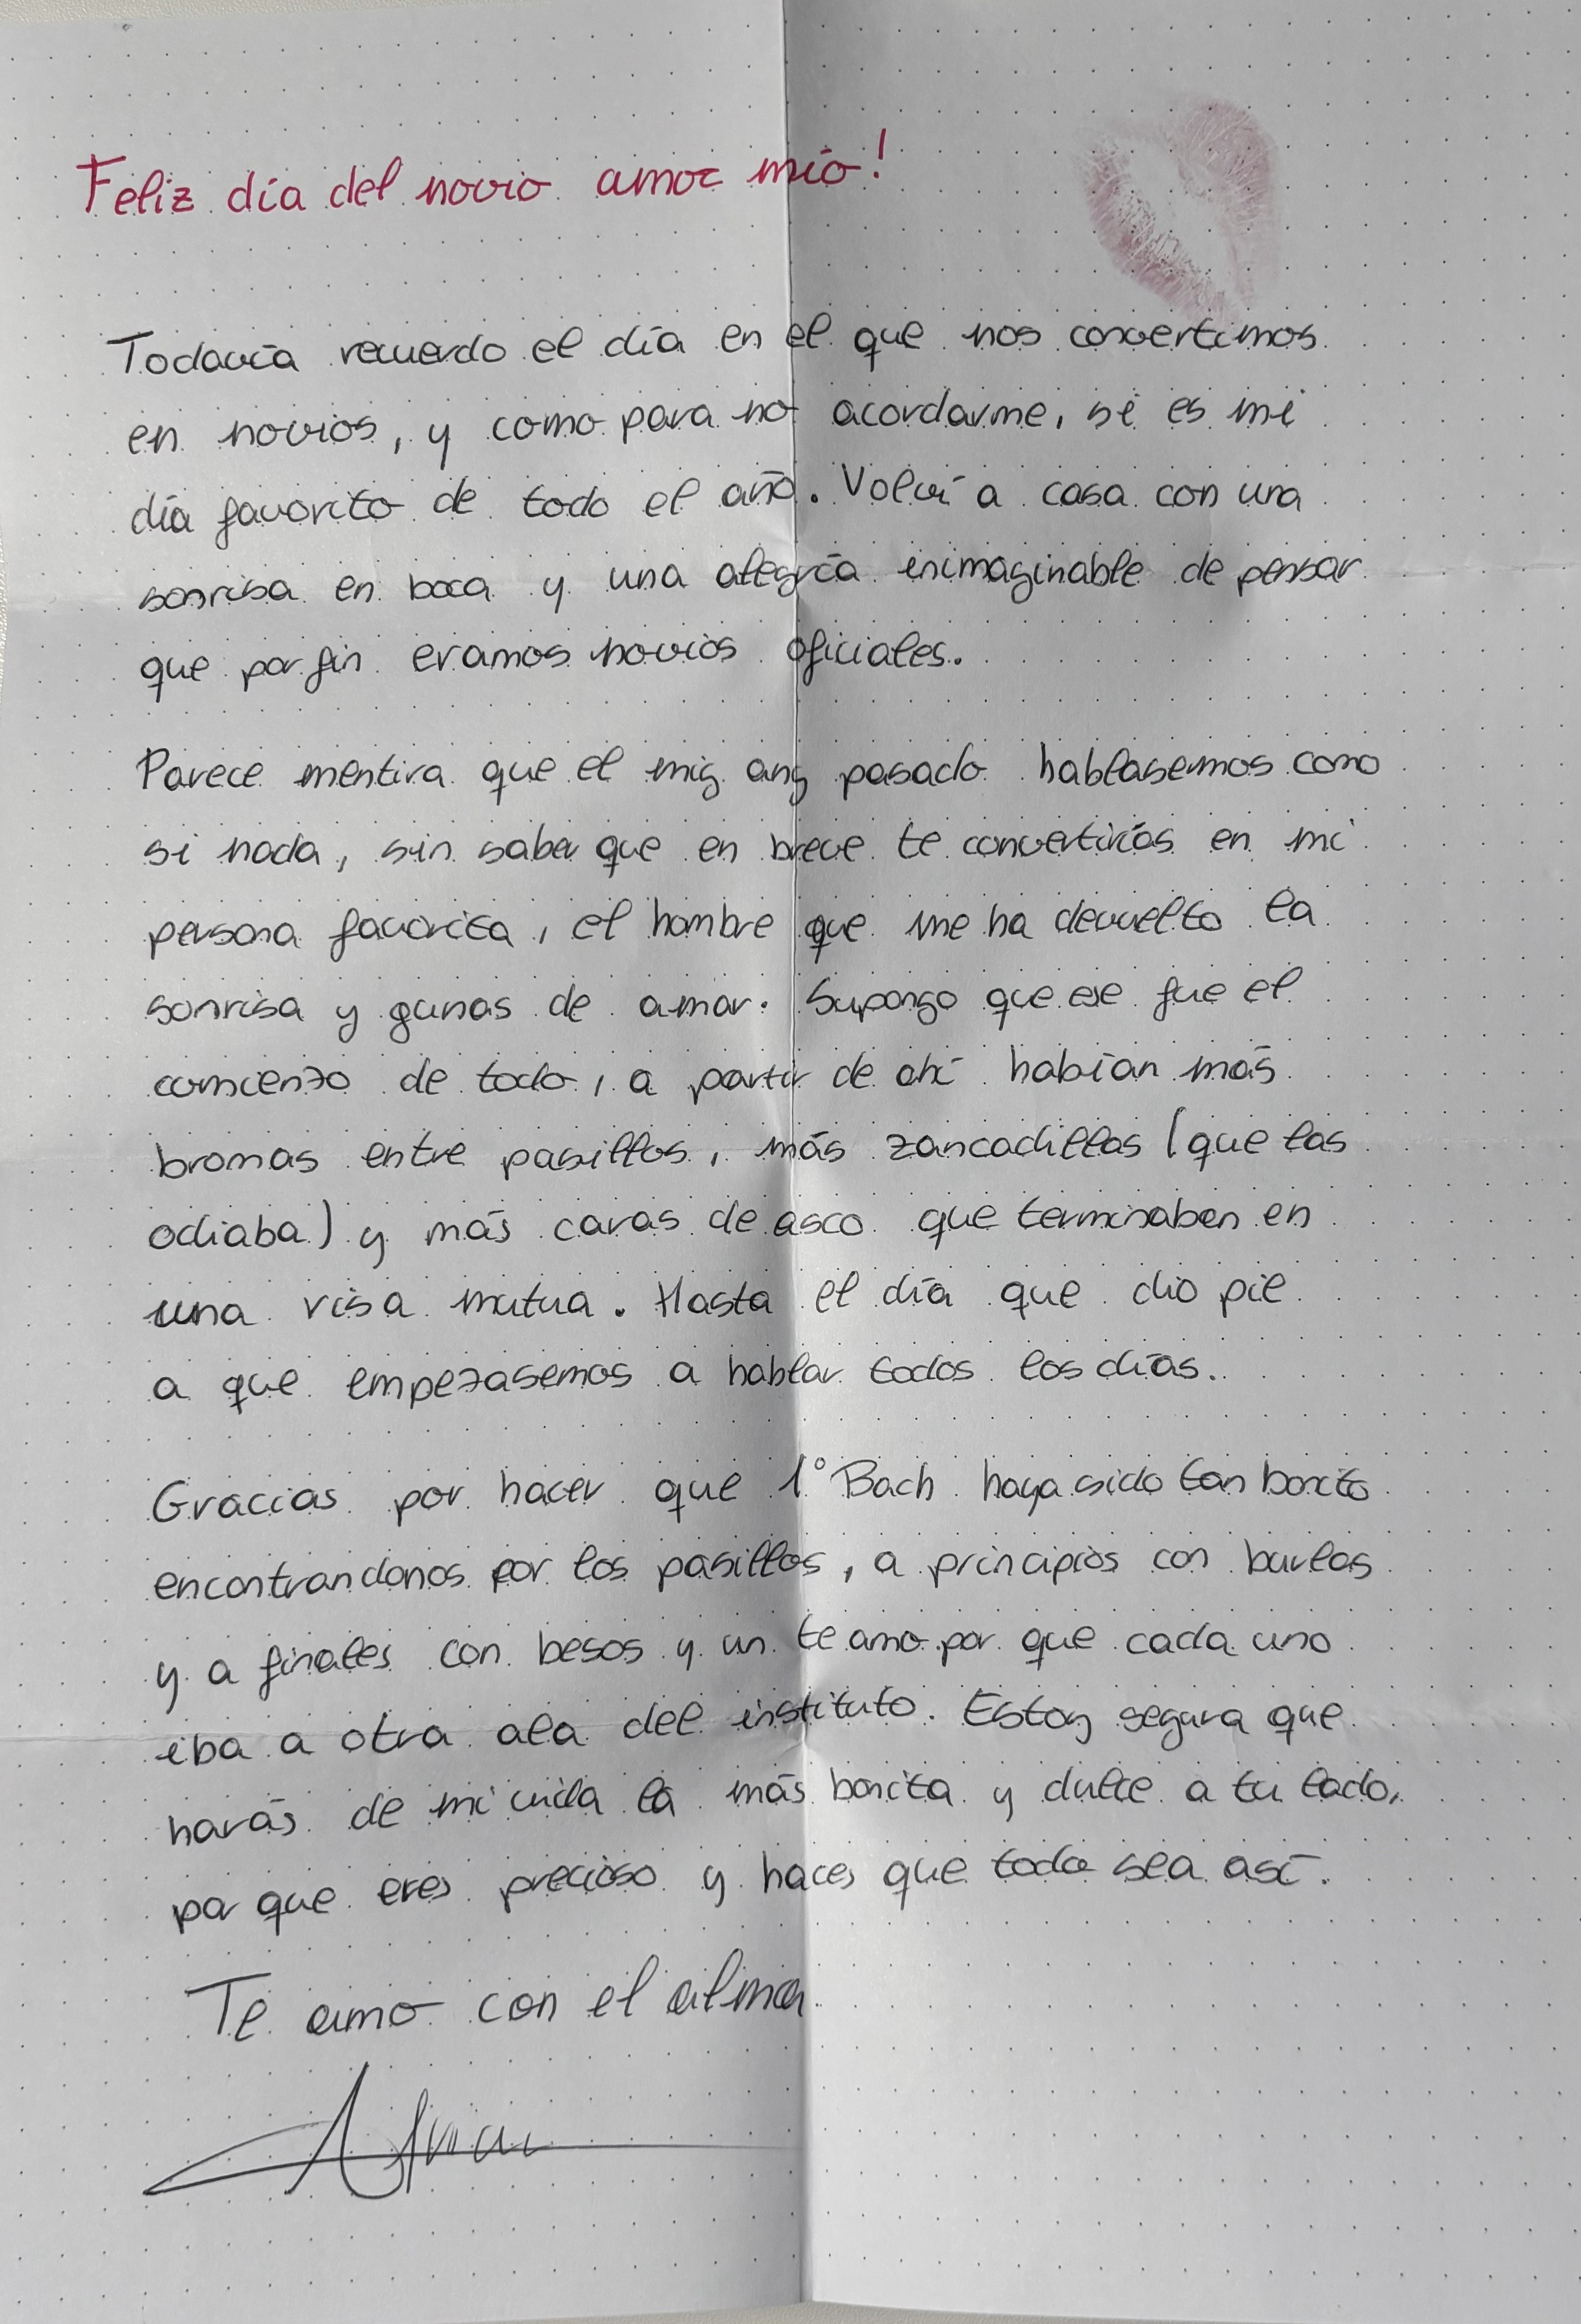 Feliz día del novio amor mío!
Todavía recuerdo el día en el que nos convertimos
en novios, y como para no acordarme, si es mi
día favorito de todo el año. Volví a casa con una
sonrisa en boca y una alegría inimaginable de pensar
que por fin eramos novios oficiales.
Parece mentira que el mig any pasado hablasemos como
si nada, sin saber que en breve te convertirías en mi
persona favorita, el hombre que me ha devuelto la
sonrisa y ganas de amar. Supongo que ese fue el
comienzo de todo, a partir de ahí habían más
bromas entre pasillos, más zancadillas (que las
odiaba) y más caras de asco que terminaban en
una risa mutua. Hasta el día que dio pie
a que empezasemos a hablar todos los días.
Gracias por hacer que 1º Bach haya sido tan bonito
encontrandonos por los pasillos, a principios con burlas
y a finales con besos y un te amo por que cada uno
iba a otra ala del instituto. Estoy segura que
harás de mi vida la más bonita y dulce a tu lado,
por que eres precioso y haces que todo sea así.
Te amo con el alma